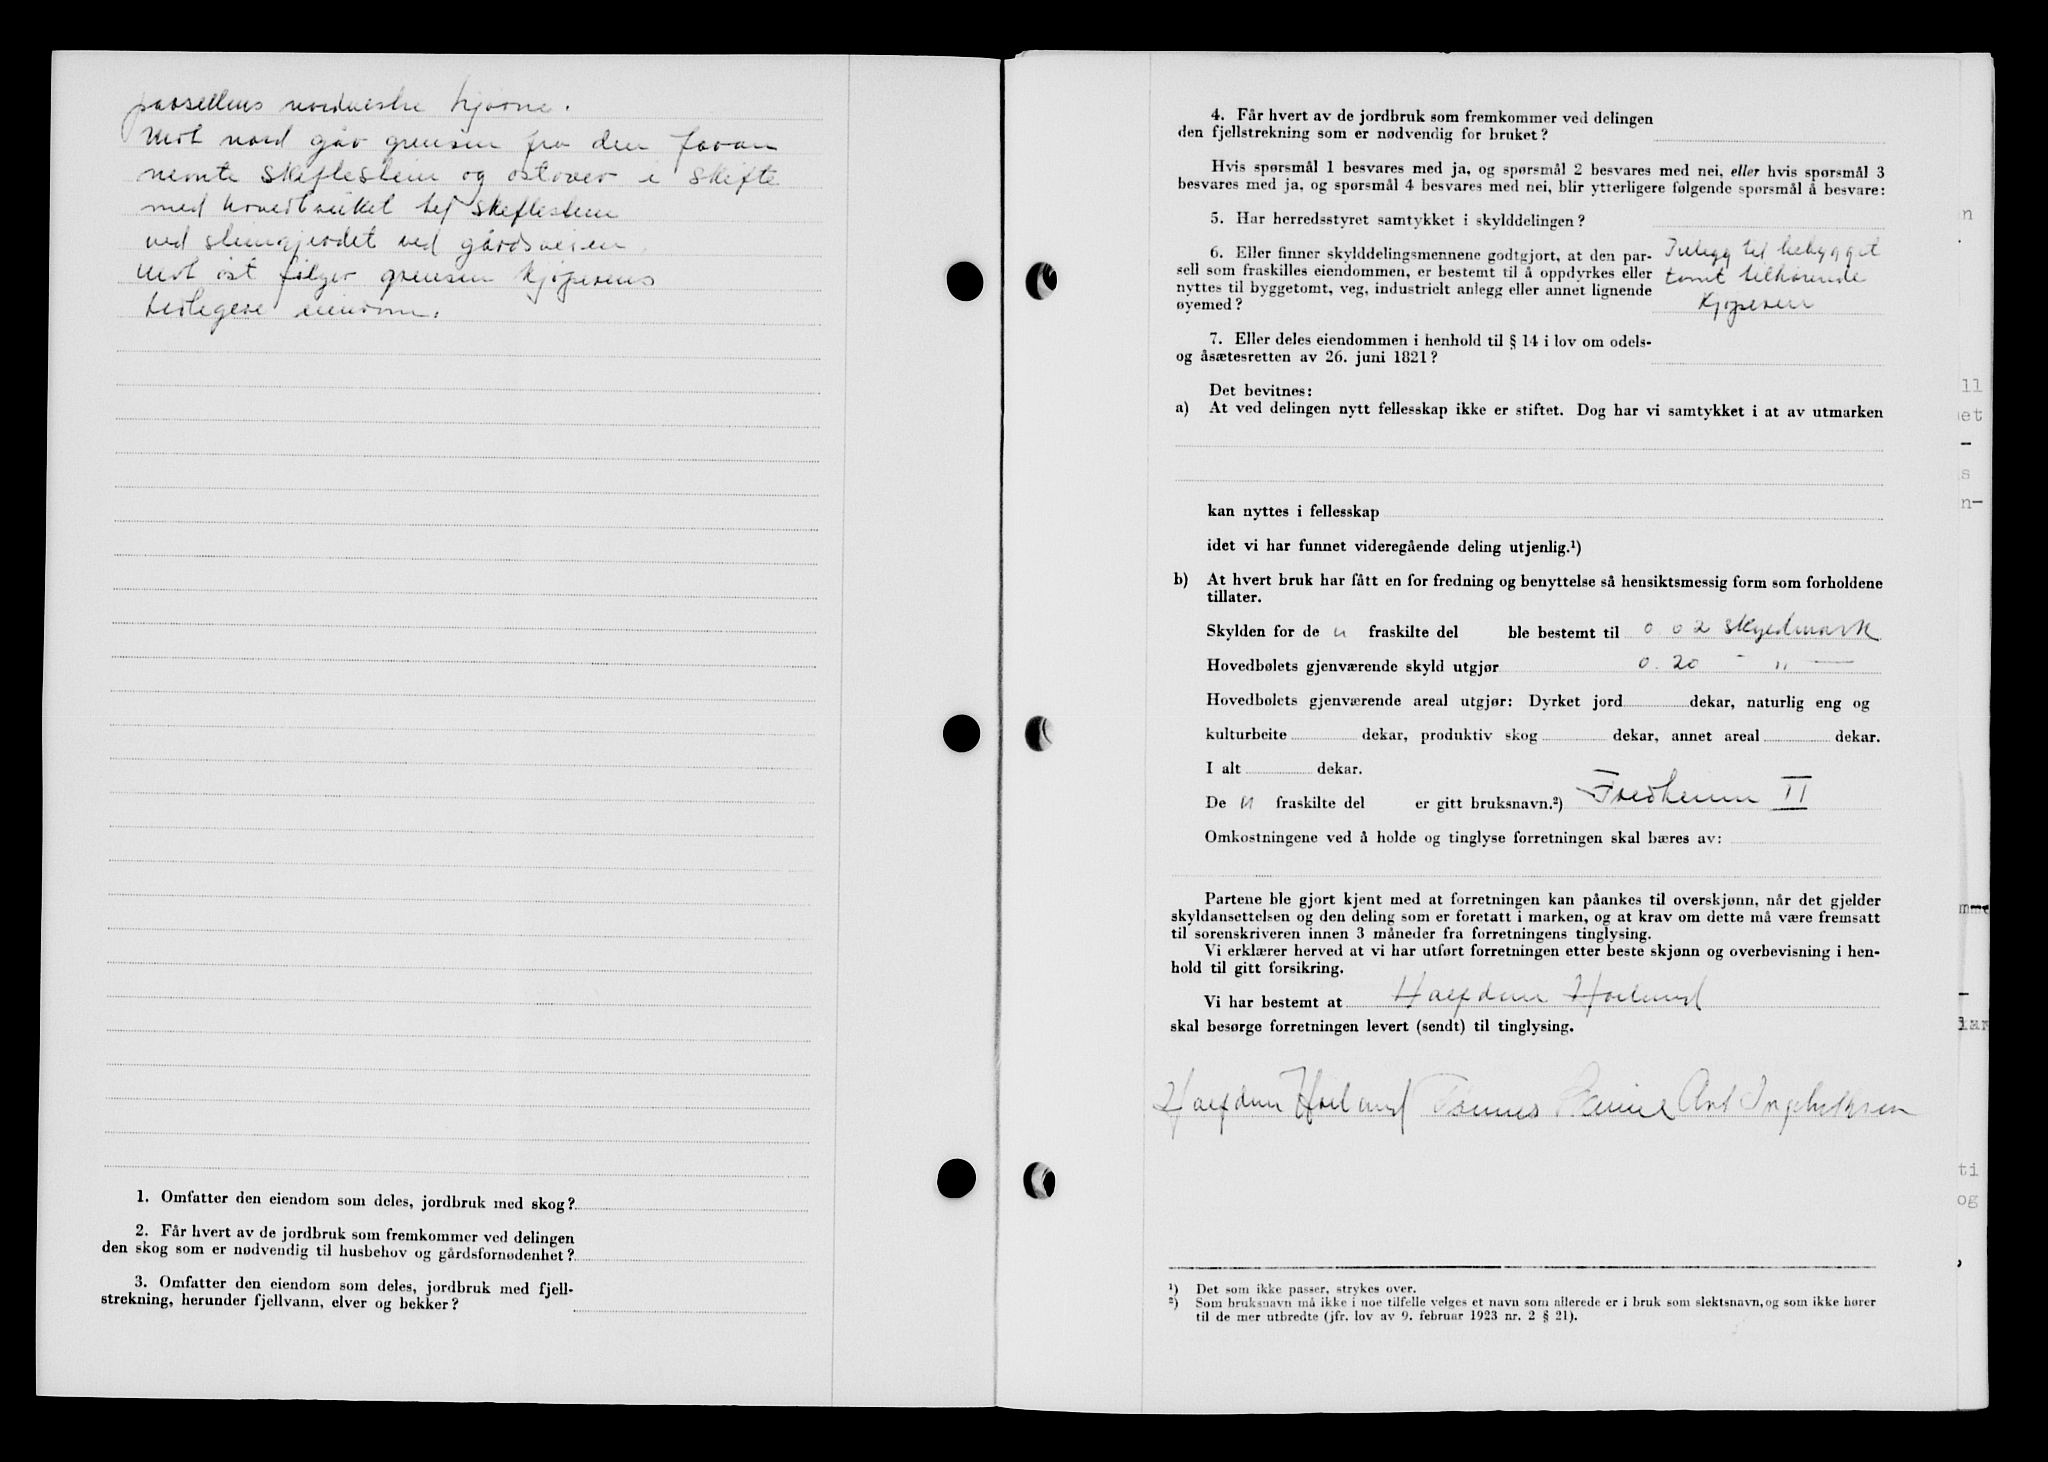 parsellens nordvestre hjørne.
Mot nord går grensen fra den foran
nemte skiftestein og østover i skifte
med hovedbruket til skiftestein
ved steingjerdet ved gårdsveien.
Mot øst følger grensen kjøperens
tidligere eiendom.
1. Omfatter den eiendom som deles, jordbruk med skog?
2. Får hvert av de jordbruk som fremkommer ved delingen
den skog som er nødvendig til husbehov og gårdsfornødenhet?
3. Omfatter den eiendom som deles, jordbruk med fjell-
strekning, herunder fjellvann, elver og bekker?
4. Får hvert av de jordbruk som fremkommer ved delingen
den fjellstrekning som er nødvendig for bruket?
Hvis spørsmål 1 besvares med ja, og spørsmål 2 besvares med nei, eller hvis spørsmål 3
besvares med ja, og spørsmål 4 besvares med nei, blir ytterligere følgende spørsmål å besvare:
5. Har herredsstyret samtykket i skylddelingen?
6. Eller finner skylddelingsmennene godtgjort, at den par-
sell som fraskilles eiendommen, er bestemt til å oppdyrkes eller
nyttes til byggetomt, veg, industrielt anlegg eller annet lignende
øyemed?
Tillegg til bebygget
tomt tilhørende
Kjøperen
7. Eller deles eiendommen i henhold til § 14 i lov om odels-
og åsætesretten av 26. juni 1821?
Det bevitnes:
a) At ved delingen nytt fellesskap ikke er stiftet. Dog har vi samtykket i at av utmarken
kan nyttes i fellesskap
idet vi har funnet videregående deling utjenlig.¹)
b) At hvert bruk har fått en for fredning og benyttelse så hensiktsmessig form som forholdene
tillater.
Skylden for de n fraskilte del ble bestemt til 0.02 skyldmark
Hovedbølets gjenværende skyld utgjør 0.20 - " -
Hovedbølets gjenværende areal utgjør: Dyrket jord dekar, naturlig eng og
kulturbeite dekar, produktiv skog dekar, annet areal dekar.
I alt dekar.
De n fraskilte del er gitt bruksnavn.²) Fredheim II
Omkostningene ved å holde og tinglyse forretningen skal bæres av:
Partene ble gjort kjent med at forretningen kan påankes til overskjønn, når det gjelder
skyldansettelsen og den deling som er foretatt i marken, og at krav om dette må være fremsatt
til sorenskriveren innen 3 måneder fra forretningens tinglysing.
Vi erklærer herved at vi har utført forretningen etter beste skjønn og overbevisning i hen-
hold til gitt forsikring.
Vi har bestemt at Halfdan Høilund
skal besørge forretningen levert (sendt) til tinglysing.
Halfdan Høilund Tønnes Ant Ingebretsen
¹) Det som ikke passer, strykes over.
²) Som bruksnavn må ikke i noe tilfelle velges et navn som allerede er i bruk som slektsnavn, og som ikke hører
til de mer utbredte (jfr. lov av 9. februar 1923 nr. 2 § 21).